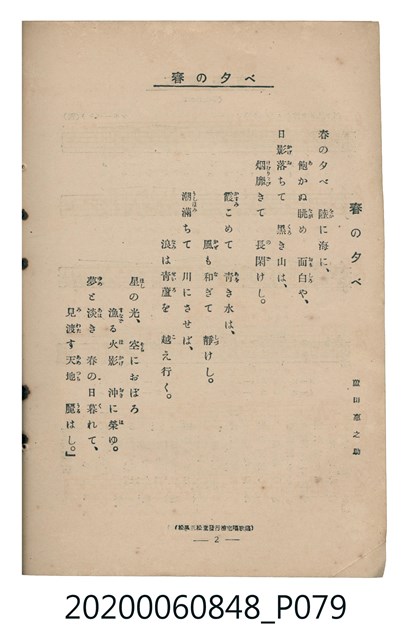 春の夕べ
春の夕べ
春の夕べ　陸に海に、
飽かぬ眺め　面白や、
日影落ちて　黒き山は、
烟靡きて　長閑けし。
霞こめて　青き水は、
風も和ぎて　靜けし。
潮滿ちて　川にさせば、
浪は青蘆を　越え行く。
星の光、　空におぼろ
漁る火影　沖に榮ゆ。
夢と淡き　春の日暮れて、
見渡す天地　麗はし。』
— 2 —
20200060848_P079